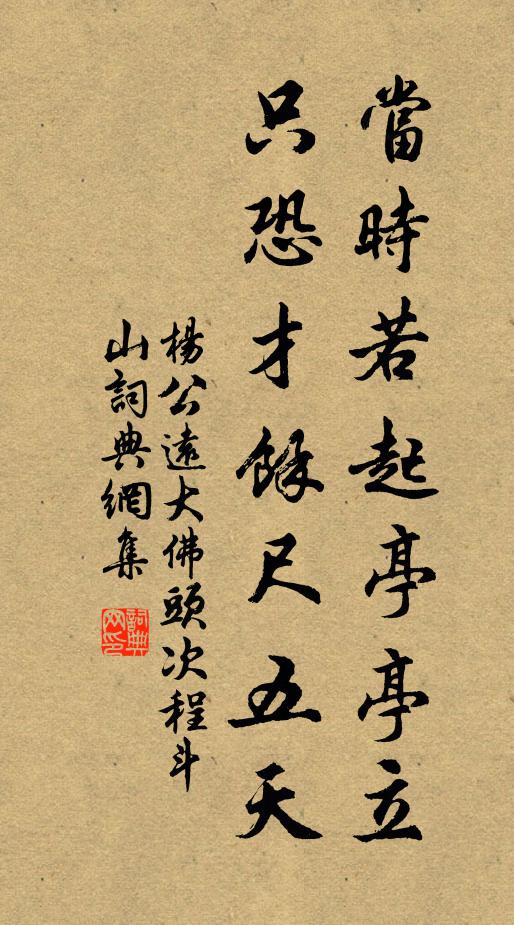 當時若起亭亭立
只恐才餘尺五天
楊公遠大佛頭次程斗
山詞典網集
詞典网印